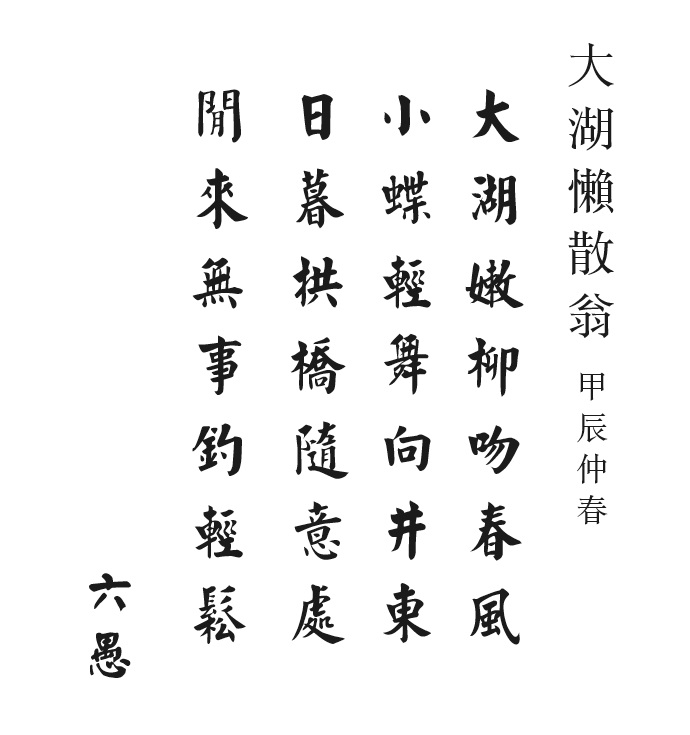 大湖懶散翁 甲辰仲春
大湖嫩柳吻春風
小蝶輕舞向井東
日暮拱橋隨意處
閒來無事釣輕鬆
六愚